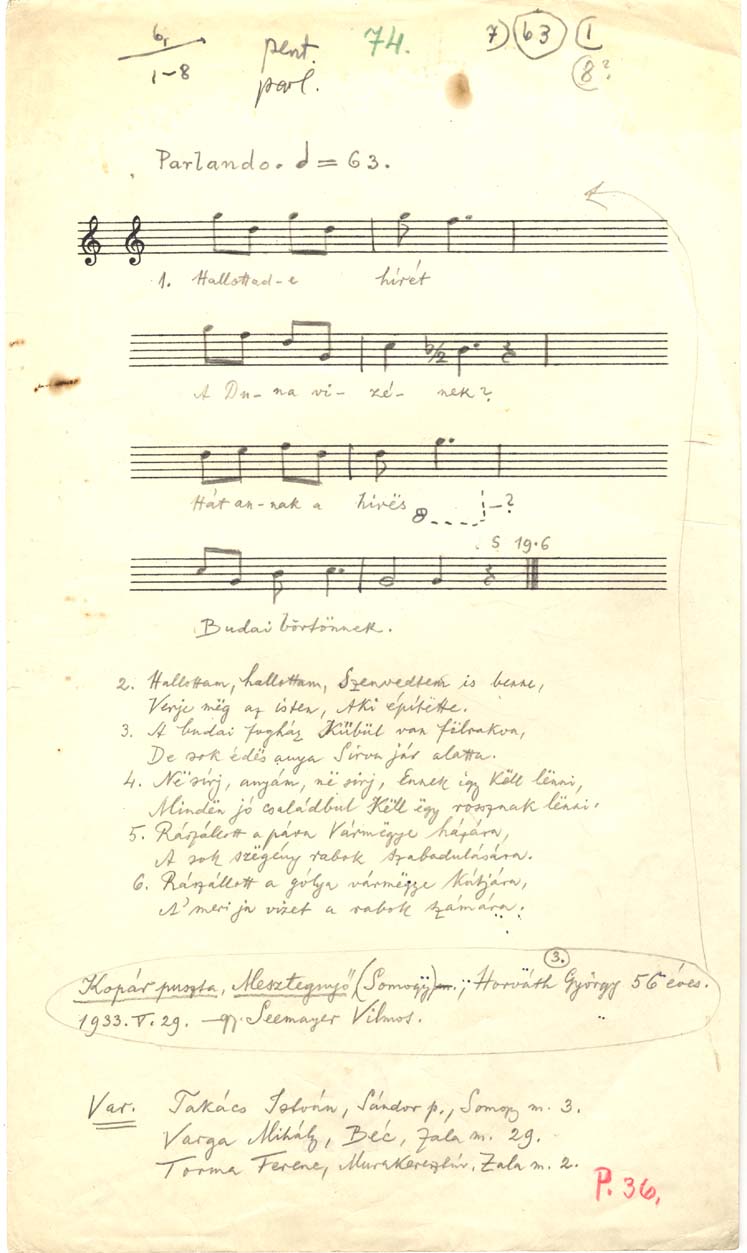 6, pent. 74. 7) 63 1
1-8 parl. 8?
Parlando. = 63.
1. Hallottad-e hírét
A Du-na vi-zé-nek?
b/2
Hát an-nak a hírës
8 -?
S 19·6
Budai börtönnek.
2. Hallottam, hallottam, Szenvedtem is benne,
Verje mëg az isten, Aki építëtte.
3. A budai fogház Kübül van fëlrakva,
De sok édës anya Sírva jár alatta.
4. Në sírj, anyám, në sírj, Ennek így Këll lënni,
Mindën jó családbul Këll ëgy rossznak lënni.
5. Rászállott a pára Vármëgye házára,
A sok szëgény rabok szabadulására.
6. Rászállott a gólya vármëgye kútjára,
A' meri ja vizet a rabok számára.
Kopár puszta, Mesztegnyő (Somogy), Horváth György 56 éves.
3.
1933. V. 29. Seemayer Vilmos.
Var. Takács István, Sándor p., Somogy m. 3.
Varga Mihály, Béc, Zala m. 29.
Torma Ferenc, Murakeresztúr, Zala m. 2.
P. 36,